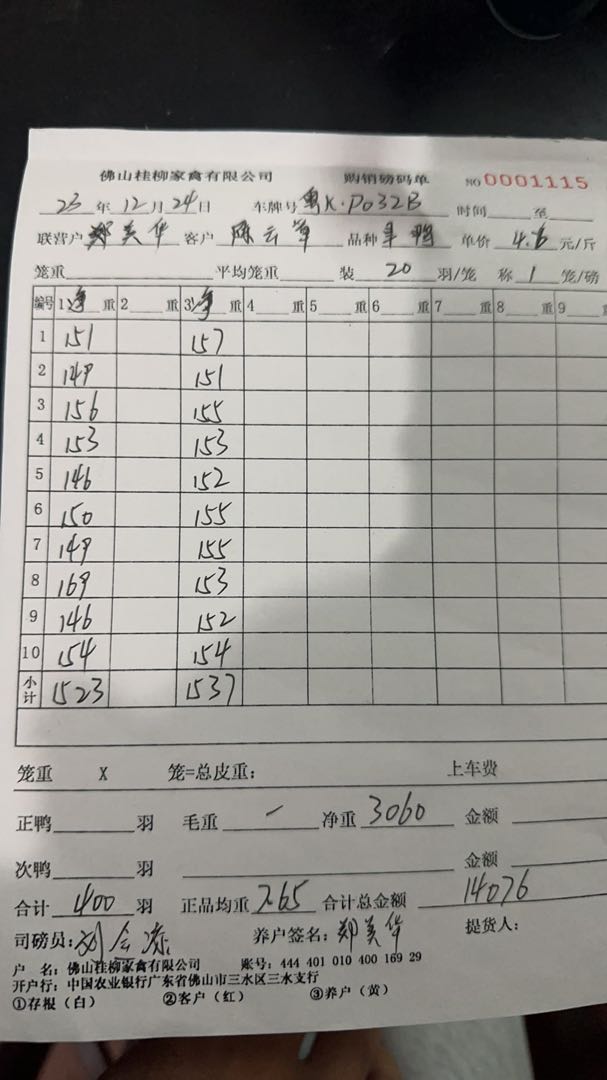 佛山桂柳家禽有限公司 购销磅码单 NO 0001115
23年12月24日 车牌号 粤K·P032B 时间 至
联营户 郑美华 客户 陈云 品种 鸭 单价 4.6 元/斤
笼重 平均笼重 装 20 羽/笼 称 1 笼/磅
编号 1净重 2 重 3净重 4 重 5 重 6 重 7 重 8 重 9 重
1 151 157
2 149 151
3 156 155
4 153 153
5 146 152
6 150 155
7 149 155
8 169 153
9 146 152
10 154 154
小计 1523 1537
笼重 X 笼=总皮重： 上车费
正鸭 羽 毛重 一 净重 3060 金额
次鸭 羽 金额
合计 400 羽 正品均重 7.65 合计总金额 14076
司磅员：刘 养户签名：郑美华 提货人：
户 名：佛山桂柳家禽有限公司 账号：444 401 010 400 169 29
开户行：中国农业银行广东省佛山市三水区三水支行
①存根（白） ②客户（红） ③养户（黄）